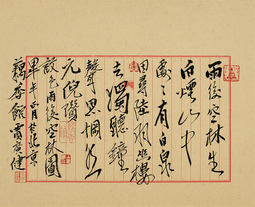 雨後空林生
白煙山中
處〻有白泉
因尋陸羽幽棲
去獨聽鐘
聲思惘然
元倪瓚
設色雨後空林圖
午正月於北京
藕香館賈廣健